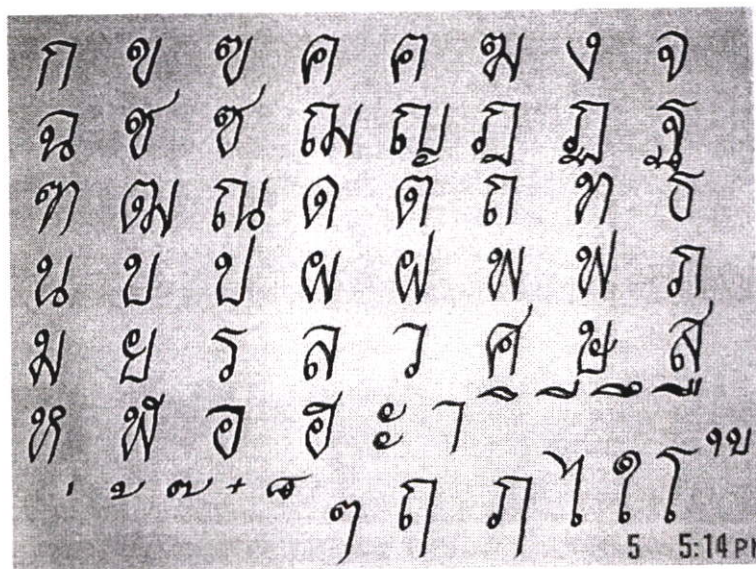 ก ข ฃ ค ฅ ฆ ง จ
ฉ ช ซ ฌ ญ ฎ ฏ ฐ
ฑ ฒ ณ ด ต ถ ท ธ
น บ ป ผ ฝ พ ฟ ภ
ม ย ร ล ว ศ ษ ส
ห ฬ อ ฮ ะ า ิ ี ึ ื
่ ้ ๊ ๋ ็ ๆ ฤ ฦ ไ ใ โ
5 5:14 PM